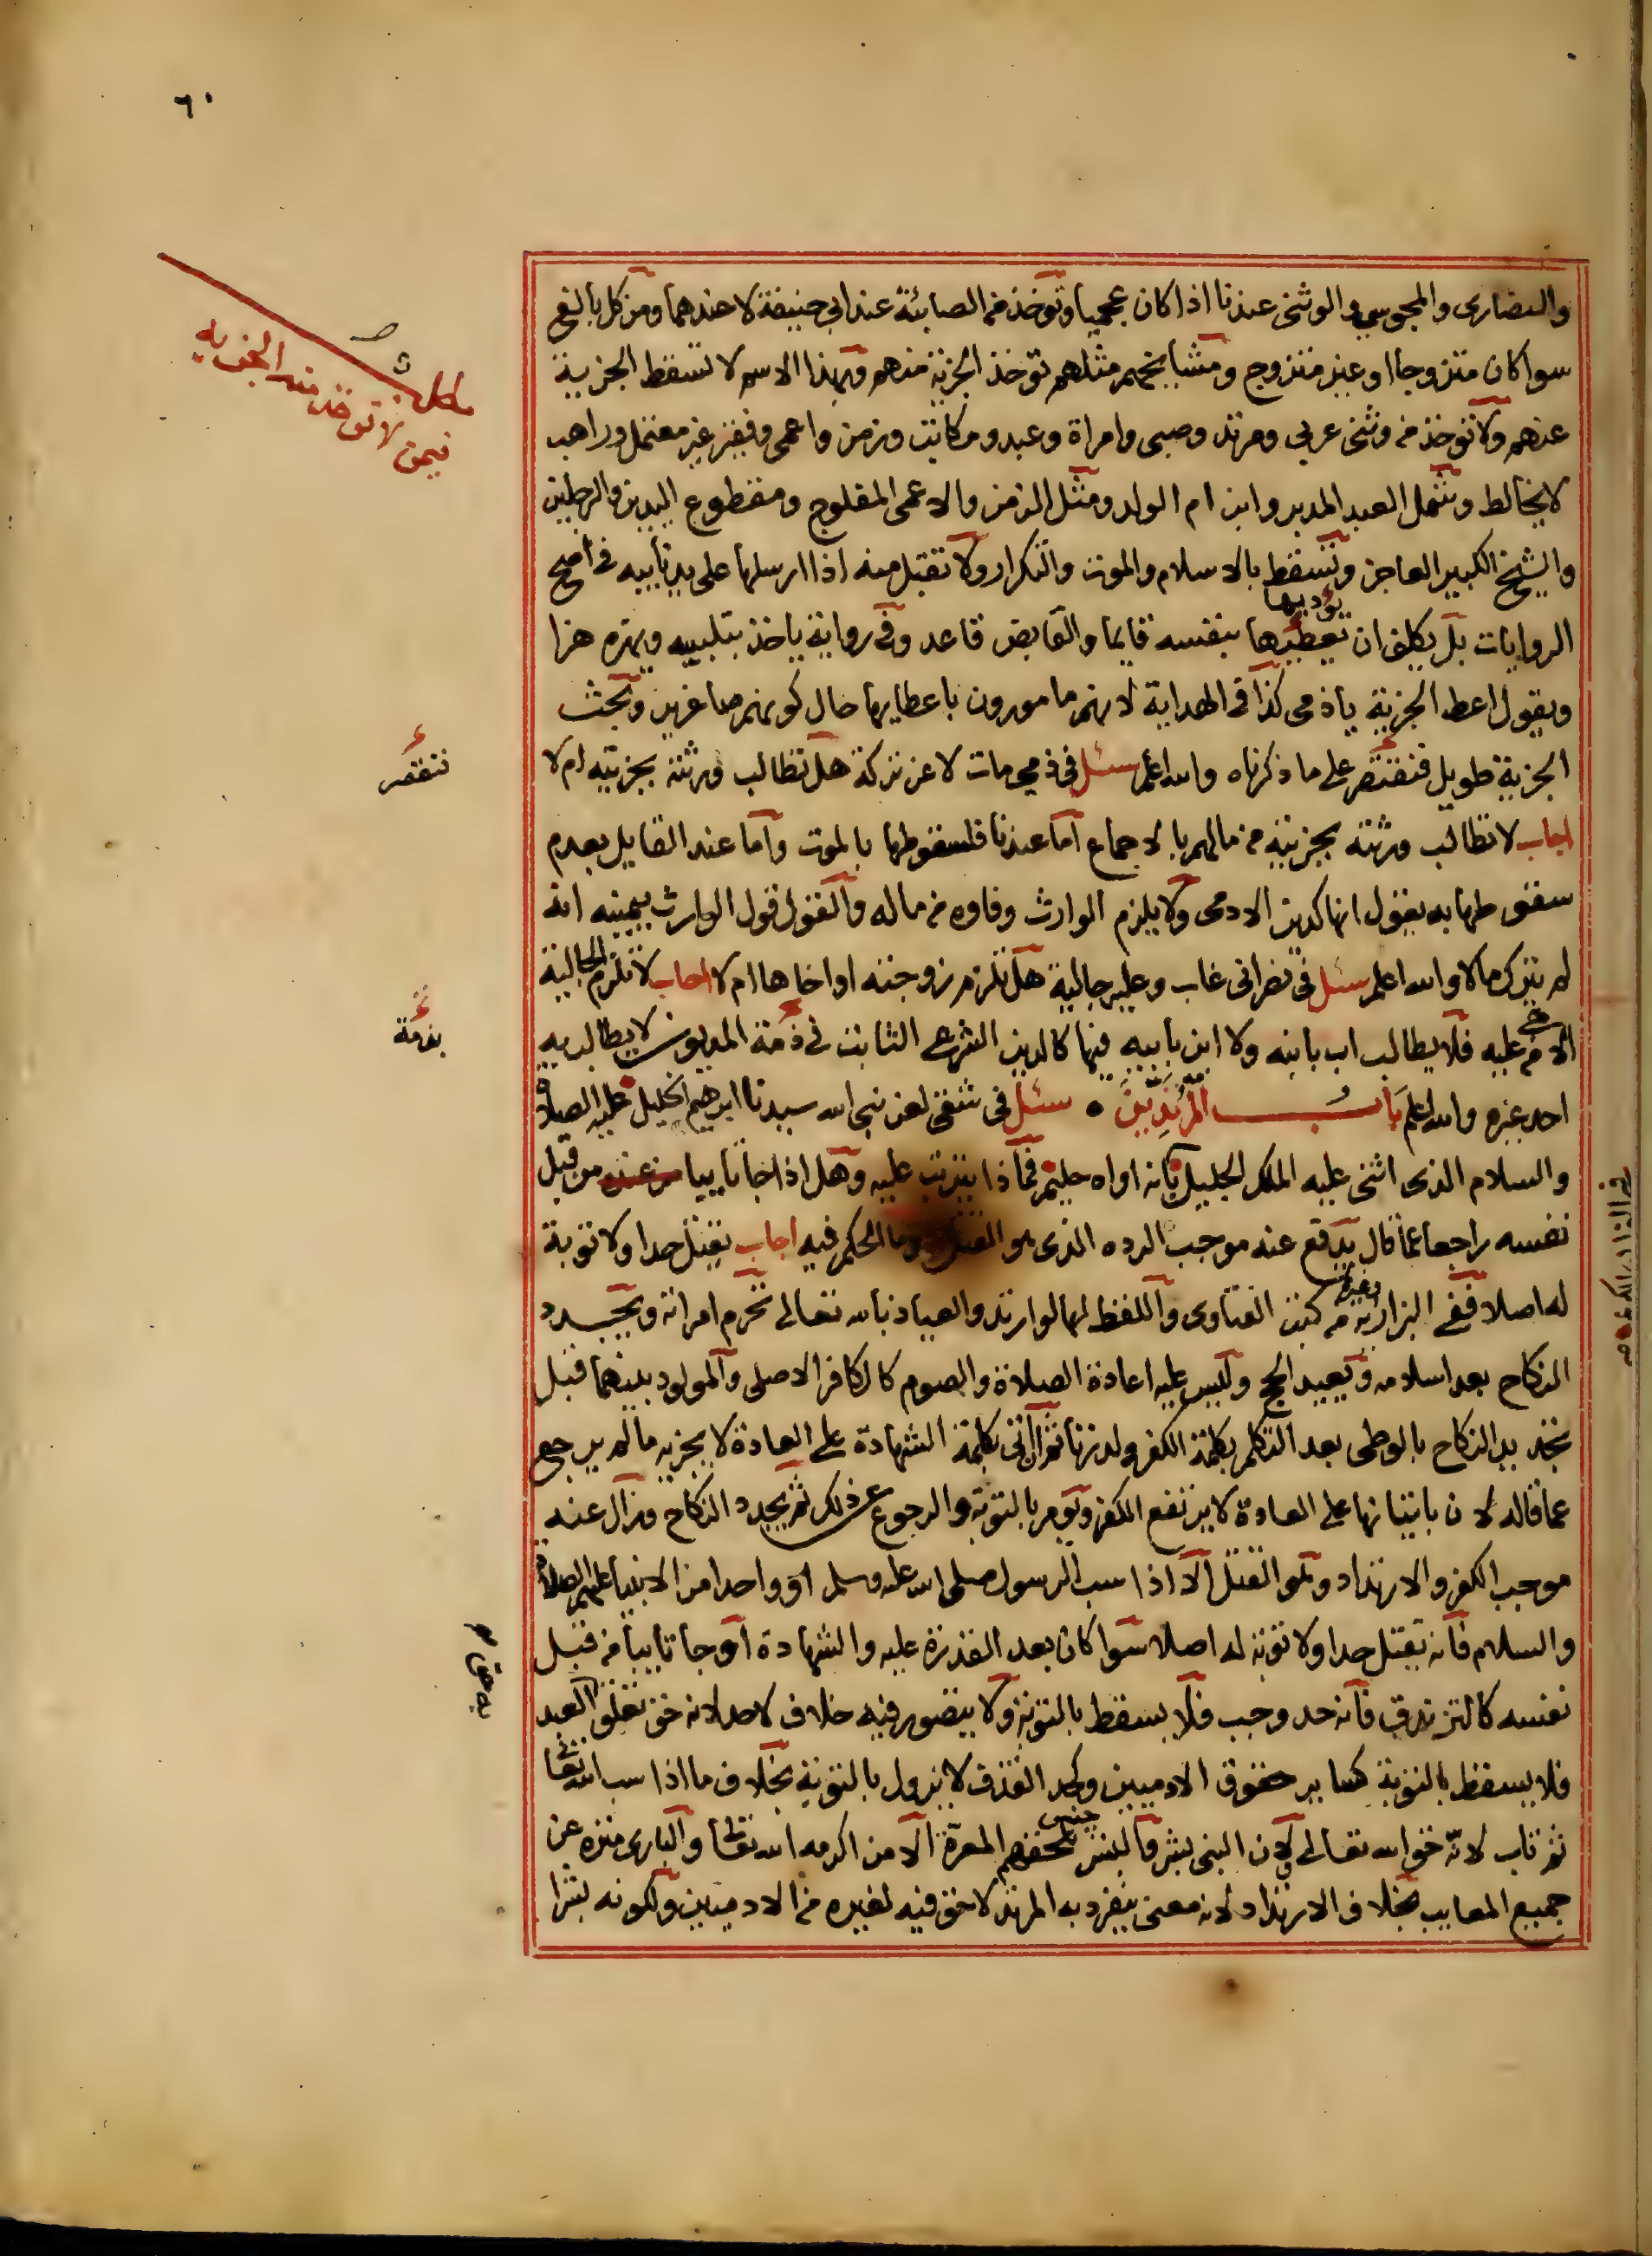 ٦٠
والنصارى والمجوسي والوثني عندنا اذا كان عجميا وتوخذ من الصابئة عند ابي حنيفة لا عندهما ومن كل بالغ
سوا كان متزوجا او غير متزوج ومشايخهم مثلهم توخذ الجزية منهم وبهذا الاسم لا تسقط الجزية
عنهم ولا توخذ من وثني عربي ومرتد وصبي وامراة وعبد ومكاتب وزمن واعمى وفقير غير معتمل وراهب
لا يخالط وشمل العبد المدبر وابن ام الولد ومثل الزمن والاعمى المفلوج ومقطوع اليدين والرجلين
والشيخ الكبير العاجز وتسقط بالاسلام والموت والتكرار ولا تقبل منه اذا ارسلها على يد نايبه في اصح
يؤديها
الروايات بل يكلف ان يعطيها بنفسه قايما والقابض قاعد وفي رواية ياخذ بتلبيبه ويهزه هزا
ويقول اعط الجزية ياذمي كذا في الهداية لانهم مامورون باعطايها حال كونهم صاغرين وبحث
الجزية طويل فنقتصر على ما ذكرناه والله اعلم سئل في ذمي مات لا عن تركة هل تطالب ورثته بجزيته ام لا
اجاب لا تطالب ورثته بجزيته من مالهم بالاجماع اما عندنا فلسقوطها بالموت واما عند القايل بعدم
سقوطها به يقول انها كدين الادمي ولا يلزم الوارث وفاوه من ماله والقول قول الوارث بيمينه انه
لم يترك مالا والله اعلم سئل في نصراني غاب وعليه جالية هل تلزم زوجته او اخاها ام لا اجاب لا تلزم الجالية
الا من هي عليه فلا يطالب اب بابنه ولا ابن بابيه فيها كالدين الشرعي الثابت في ذمة المديون لا يطالب به
احد غيره والله اعلم بَابُ المُرْتَدِّينَ ٥ سئل في شقي لعن نبي الله سيدنا ابرهيم الخليل عليه الصلاة
والسلام الذي اثنى عليه الملك الجليل بانه اواه حليم فماذا يترتب عليه وهل اذا جا تايبا من قبل
نفسه راجعا عما قال يدفع عنه موجب الرده الذي هو القتل وما الحكم فيه اجاب يقتل حدا ولا توبة
وغيرها
له اصلا ففي البزازية من كتب الفتاوى واللفظ لها لو ارتد والعياذ بالله تعالى تحرم امراته ويجدد
النكاح بعد اسلامه ويعيد الحج وليس عليه اعادة الصلاة والصوم كالكافر الاصلي والمولود بينهما قبل
تجديد النكاح بالوطي بعد التكلم بكلمة الكفر ولد زنا ثم ان اتى بكلمة الشهادة على العادة لا يجزيه ما لم يرجع
عما قاله لان باتيانها على العادة لا يرتفع الكفر ويومر بالتوبة والرجوع عن ذلك ثم يجدد النكاح وزال عنه
موجب الكفر والارتداد وهو القتل الا اذا سب الرسول صلى الله عليه وسلم او واحدا من الانبيا عليهم الصلاة
والسلام فانه يقتل حدا ولا توبة له اصلا سوا كان بعد القدرة عليه والشهادة او جا تايبا من قبل
نفسه كالزنديق فانه حد وجب فلا يسقط بالتوبة ولا يتصور فيه خلاف لاحد لانه حق تعلق به حق العبد
فلا يسقط بالتوبة كساير حقوق الادميين وكحد القذف لا يزول بالتوبة بخلاف ما اذا سب الله تعالى
جنس
ثم تاب لانه حق الله تعالى ولان النبي بشر والبشر تلحقهم المعرة الا من اكرمه الله تعالى والباري منزه عن
جميع المعايب بخلاف الارتداد لانه معنى ينفرد به المرتد لا حق فيه لغيره من الادميين ولكونه بشرا
مطلب
فيمن لا توخذ منه الجزيه
نقتصر
بذمة
به حق